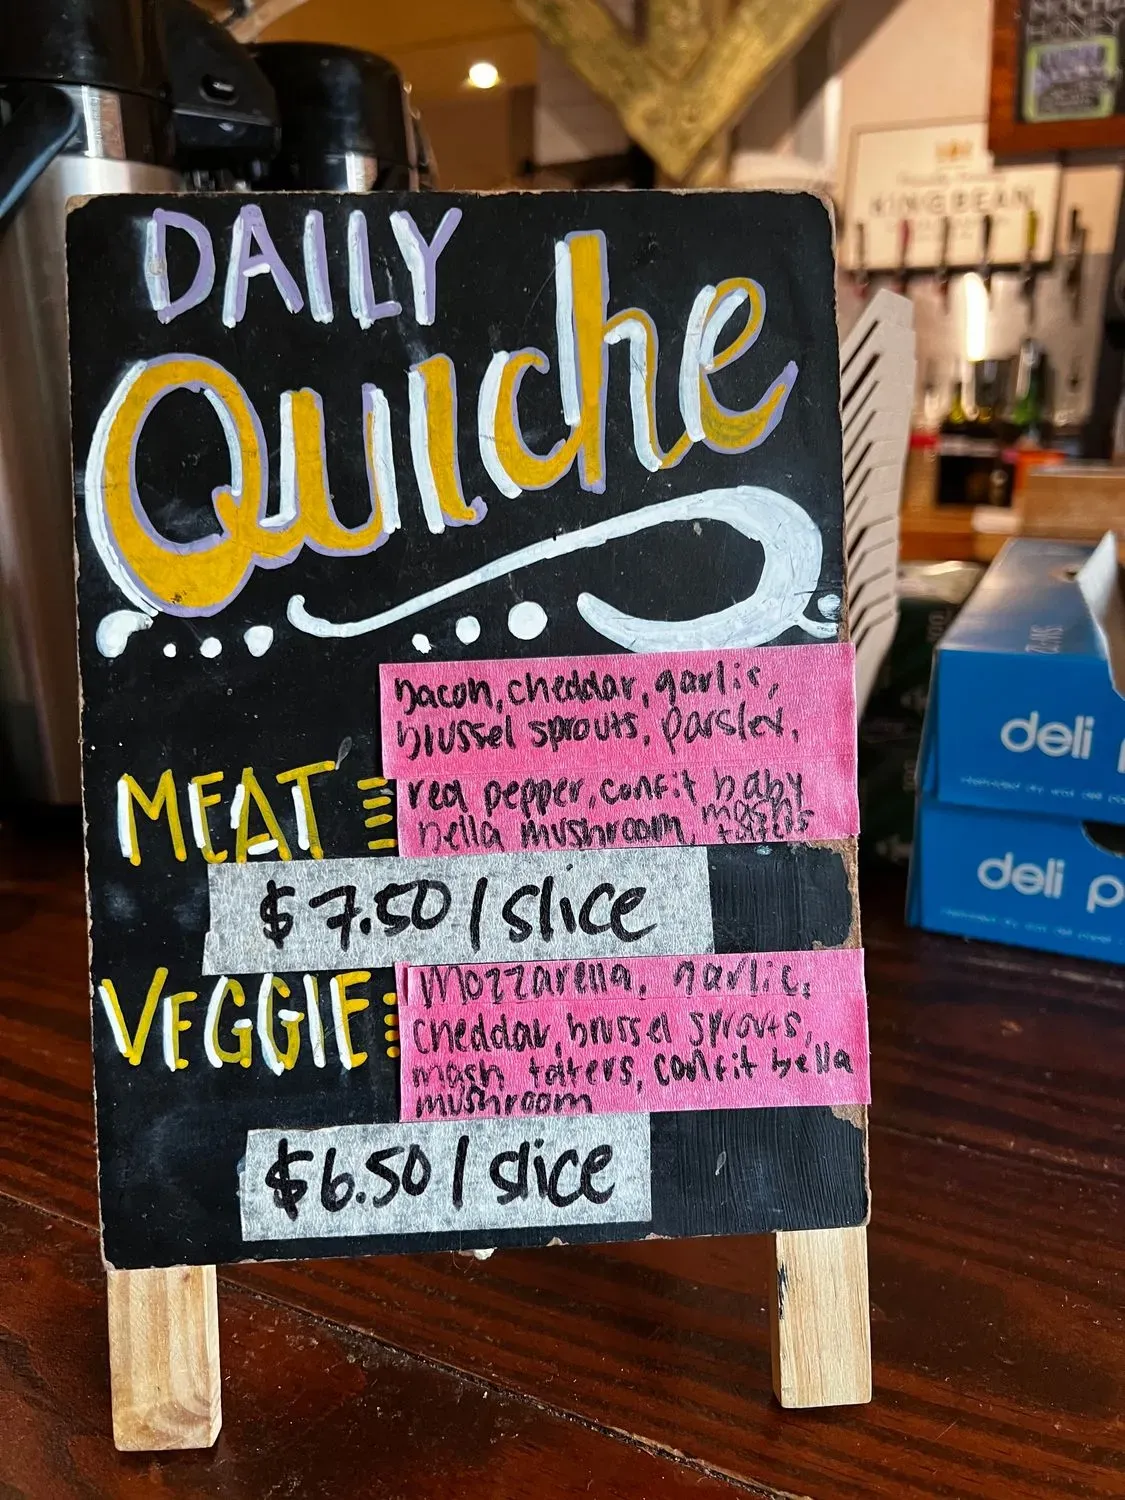 DAILY
Quiche
bacon, cheddar, garlic,
brussel sprouts, parsley,
MEAT
red pepper, confit baby
bella mushroom, mash
taters
$7.50/slice
VEGGIE
Mozzarella, garlic,
cheddar, brussel sprouts,
mash taters, confit bella
mushroom
$6.50/slice
MOCHA
HONEY
KING BEAN
deli p
deli p